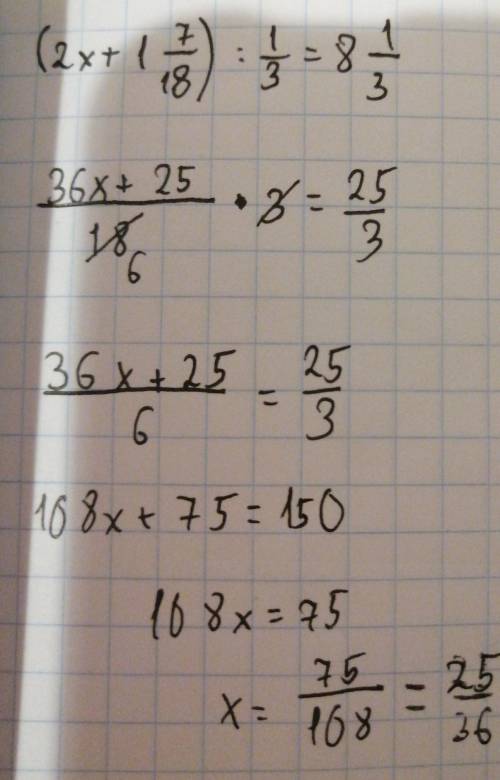 (2x + 1 7/18) : 1/3 = 8 1/3
36x + 25/18 6 · 3 = 25/3
36x + 25/6 = 25/3
108x + 75 = 150
108x = 75
x = 75/108 = 25/36